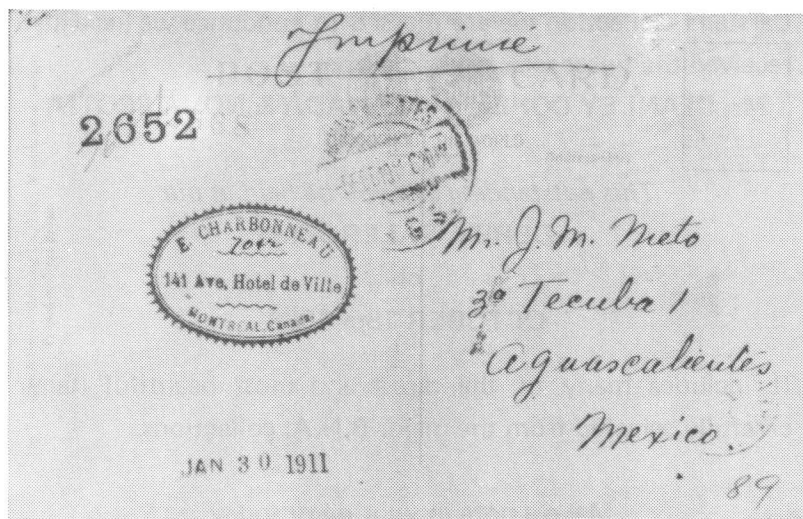 Imprimé
2652
E. CHARBONNEAU
7042
141 Ave. Hotel de Ville
MONTREAL, Canada.
Mr. J. M. Nieto
3ª Tecuba 1
Aguascalientes
Mexico.
JAN 30 1911
89